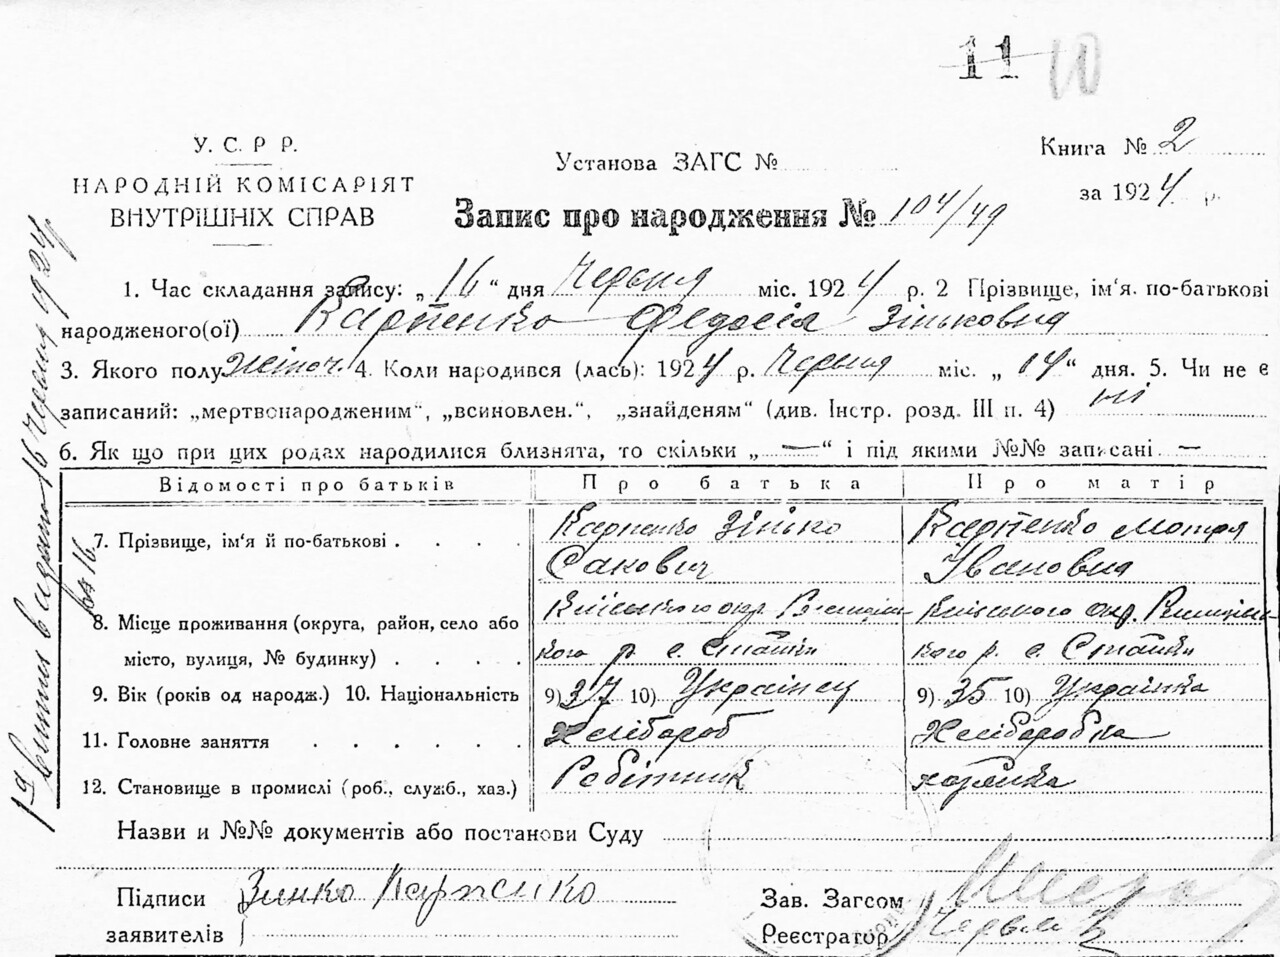 11 10
У. С. Р Р.
НАРОДНІЙ КОМІСАРІЯТ
ВНУТРІШНІХ СПРАВ
Установа ЗАГС №
Книга № 2
за 1924 р.
Запис про народження № 104/49
1. Час складання запису: „ 16 “ дня Червня міс. 1924 р. 2 Прізвище, ім'я. по-батькові
народженого(ої) Карпенко Федосія Зіньковна
3. Якого полу жіноч. 4. Коли народився (лась): 1924 р. Червня міс. „ 14 “ дня. 5. Чи не є
записаний: „мертвонародженим“, „всиновлен.“, „знайденям“ (див. Інстр. розд. III п. 4) ні
6. Як що при цих родах народилися близнята, то скільки „ — “ і під якими №№ записані —
Відомості про батьків Про батька Про матір
7. Прізвище, ім'я й по-батькові . . . . Карпенко Зінько Сакович Карпенко Мотря Івановна
8. Місце проживання (округа, район, село або Київського окр. Київського окр.
місто, вулиця, № будинку) . . . . кого р. с. кого р. с.
9. Вік (років од народж.) 10. Національність 9) 37 10) Українец 9) 35 10) Українка
11. Головне заняття . . . . . . Хлібороб Хліборобка
12. Становище в промислі (роб., служб., хаз.) Робітник
Назви и №№ документів або постанови Суду
Підписи Зинко Карпенко
заявителів
Зав. Загсом
Реєстратор
16 Червня 1924